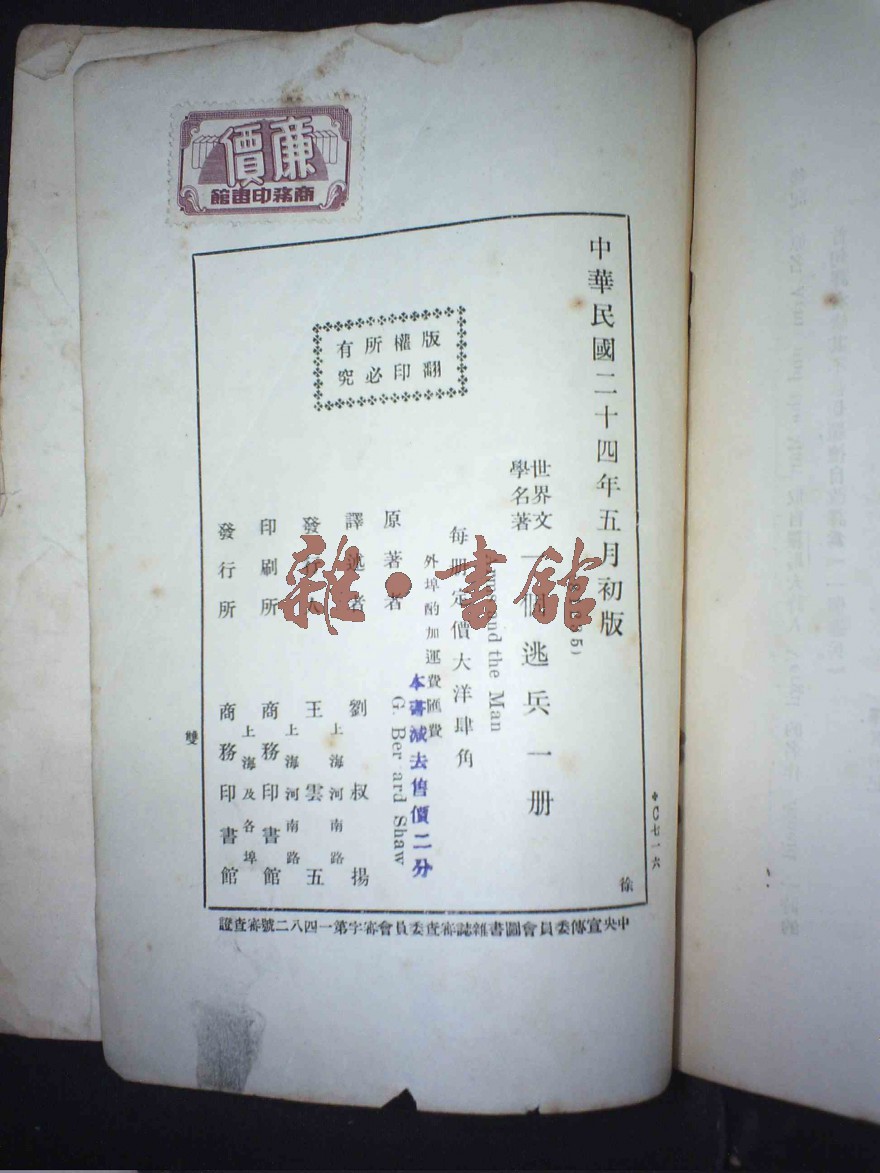 廉價
商務印書館
中華民國二十四年五月初版
世界文學名著
一個逃兵一册
and the Man
每册定價大洋肆角
外埠酌加運費匯費
本書減去售價二分
原著者
G. Ber ard Shaw
譯述者 劉叔揚
發行人 王雲五
上海河南路
印刷所 商務印書館
上海河南路
發行所 商務印書館
上海及各埠
版權所有
翻印必究
雜·書館
雙
徐
中央宣傳委員會圖書雜誌審查委員會審字第一四八二號審查證